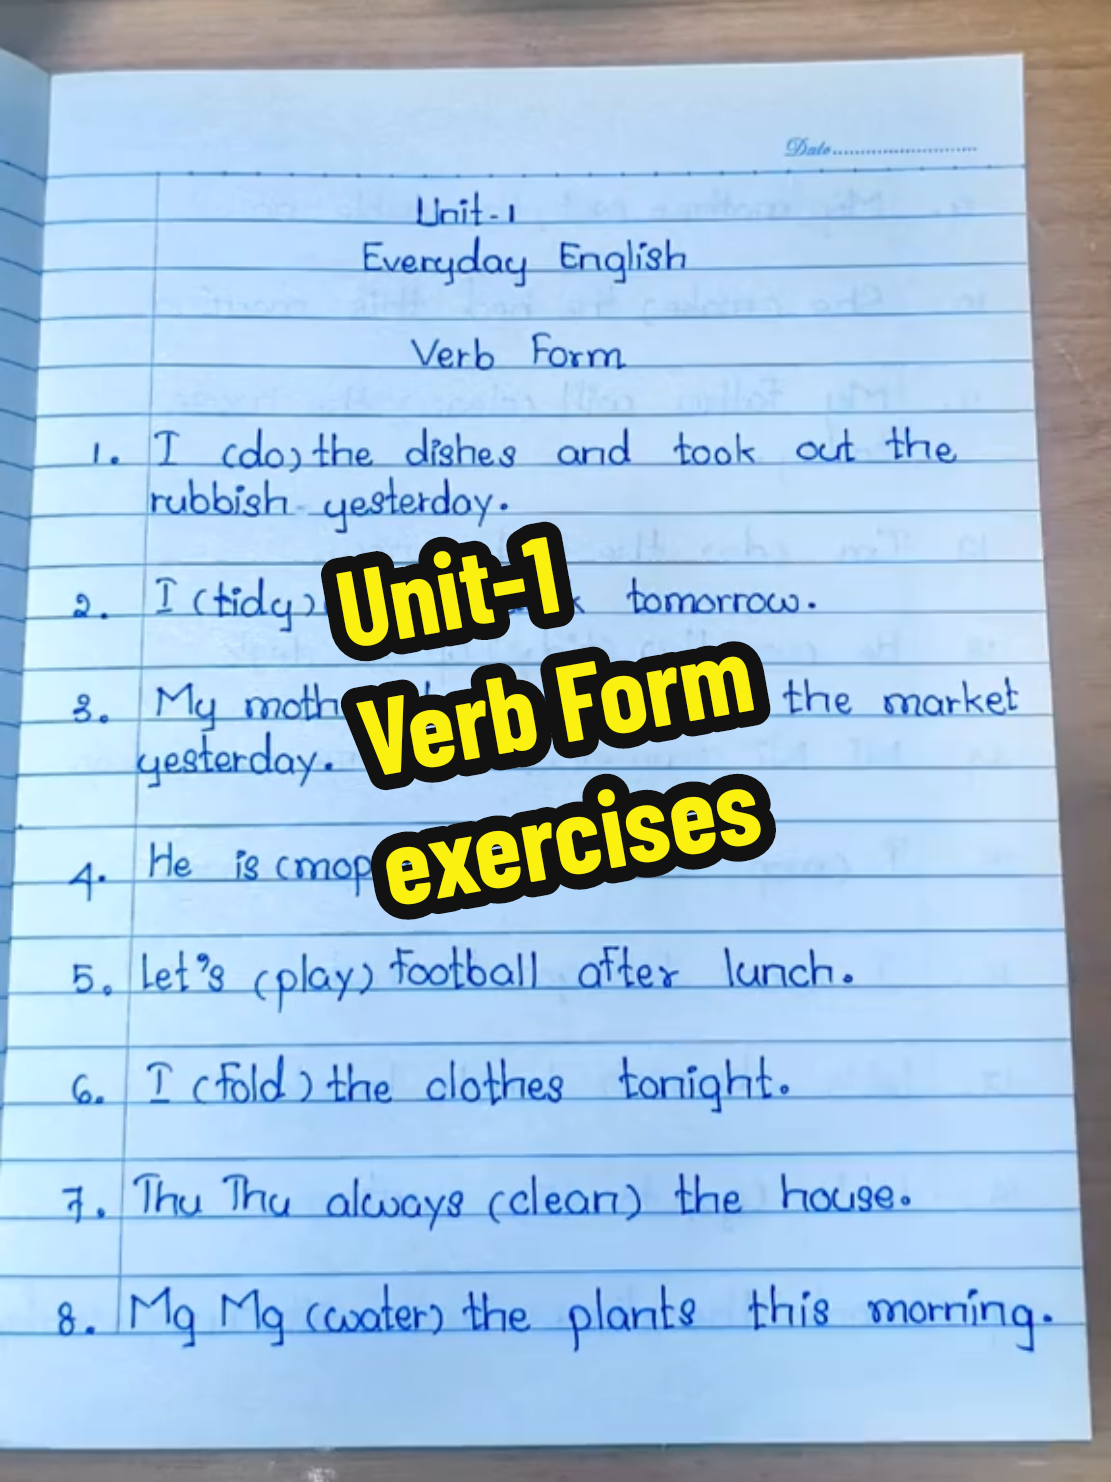 Date
Unit-1
Everyday English
Verb Form
1. I (do) the dishes and took out the
rubbish yesterday.
2. I (tidy) tomorrow.
3. My the market
yesterday.
4. He is
5. Let's (play) football after lunch.
6. I (fold) the clothes tonight.
7. Thu Thu always (clean) the house.
8. Mg Mg (water) the plants this morning.
Unit-1
Verb Form
exercises